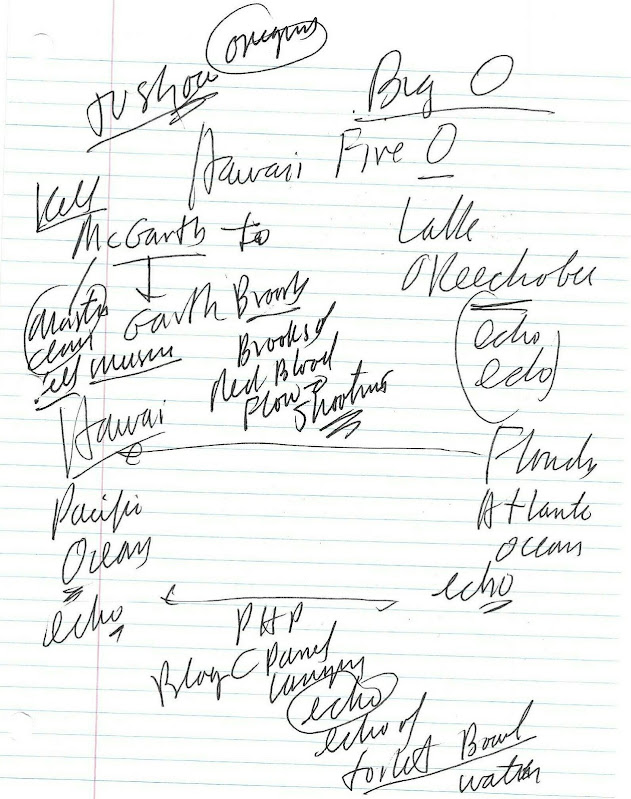 origins
TV Show
Big O
Hawaii Five O
Key
McGarth to
Lake
Okeechobee
Garth Brooks
echo
echo
Brooks of
Red Blood
Flow
Shooting
museum
Hawaii
Florida
Pacific
Ocean
echo
Atlantic
ocean
echo
PHP
Blog C Panel
echo
echo of
toilet Bowl
water